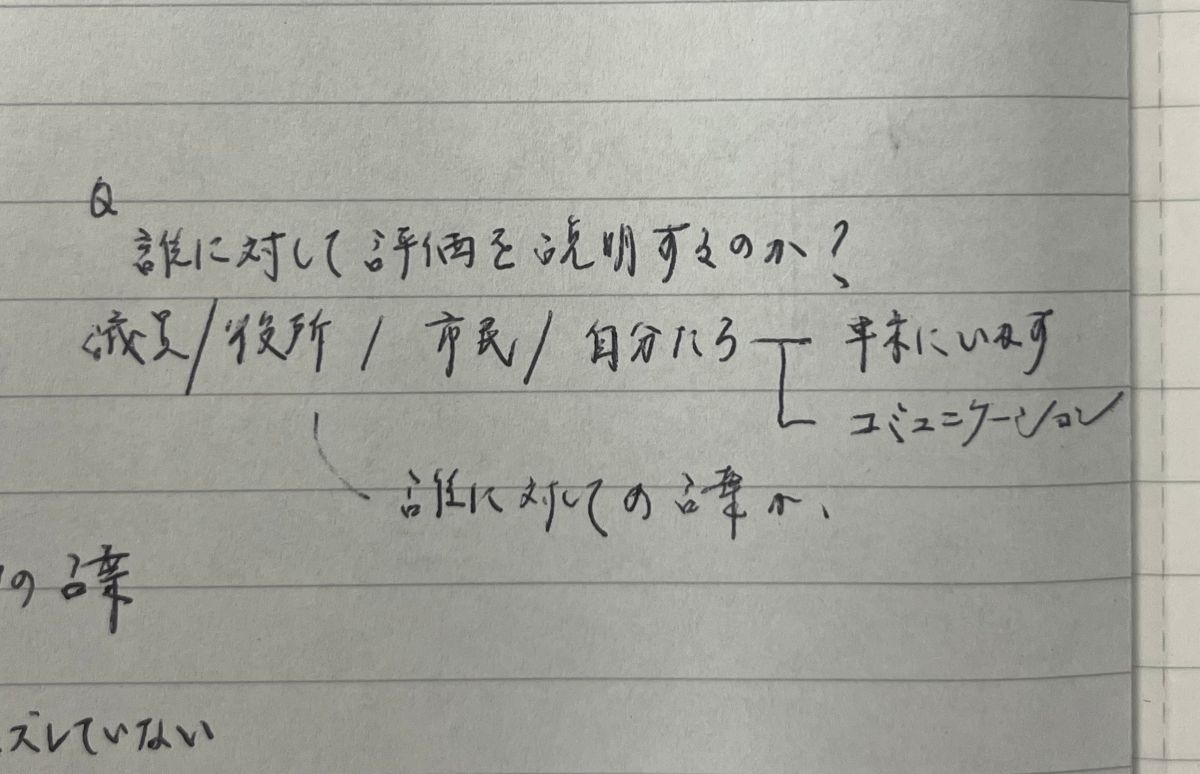 Q
誰に対して評価を説明するのか?
議員/役所 / 市民/ 自分たち にいます
コミュニケーション
誰に対しての 言葉か、
の 言葉
ズしていない